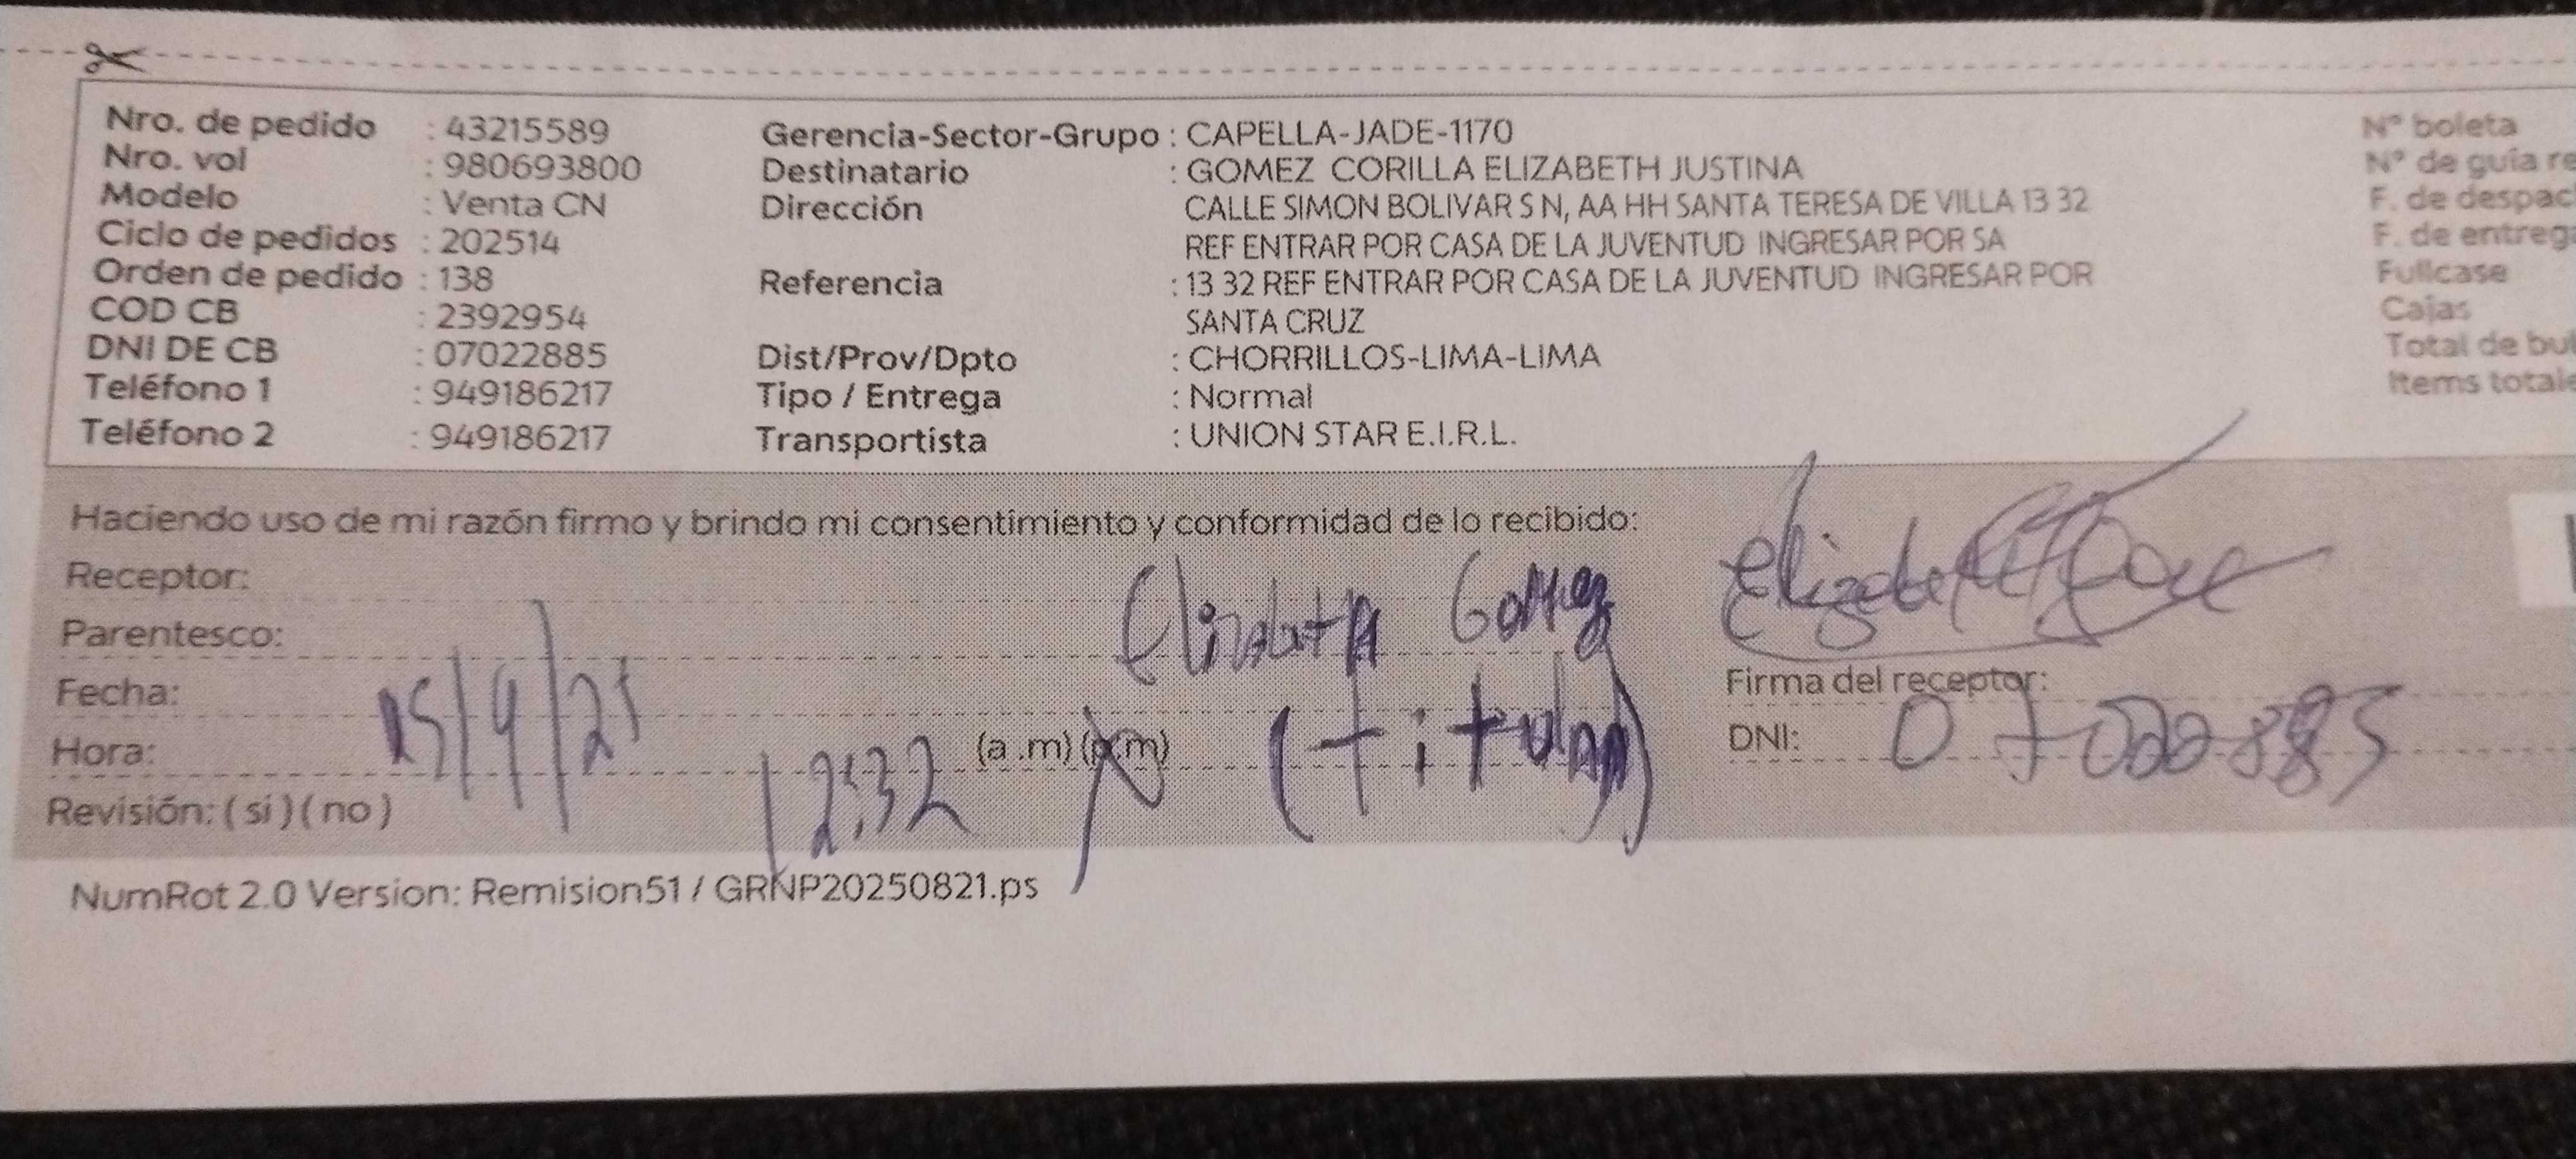 Nro. de pedido : 43215589
Nro. vol : 980693800
Modelo : Venta CN
Ciclo de pedidos : 202514
Orden de pedido : 138
COD CB : 2392954
DNI DE CB : 07022885
Teléfono 1 : 949186217
Teléfono 2 : 949186217
Gerencia-Sector-Grupo : CAPELLA-JADE-1170
Destinatario : GOMEZ CORILLA ELIZABETH JUSTINA
Dirección CALLE SIMON BOLIVAR S N, AA HH SANTA TERESA DE VILLA 13 32
REF ENTRAR POR CASA DE LA JUVENTUD INGRESAR POR SA
Referencia : 13 32 REF ENTRAR POR CASA DE LA JUVENTUD INGRESAR POR
SANTA CRUZ
Dist/Prov/Dpto : CHORRILLOS-LIMA-LIMA
Tipo / Entrega : Normal
Transportista : UNION STAR E.I.R.L.
N° boleta
N° de guia re
F. de despac
F. de entrega
Fullcase
Cajas
Total de bul
Items totale
Haciendo uso de mi razón firmo y brindo mi consentimiento y conformidad de lo recibido:
Receptor: Elizabeth Gomez
Parentesco: (titular)
Fecha: /9/25
Hora: 12:32 (a .m) (p.m)
Revisión: ( si ) ( no )
Firma del receptor:
DNI: 07022885
NumRot 2.0 Version: Remision51 / GRNP20250821.ps